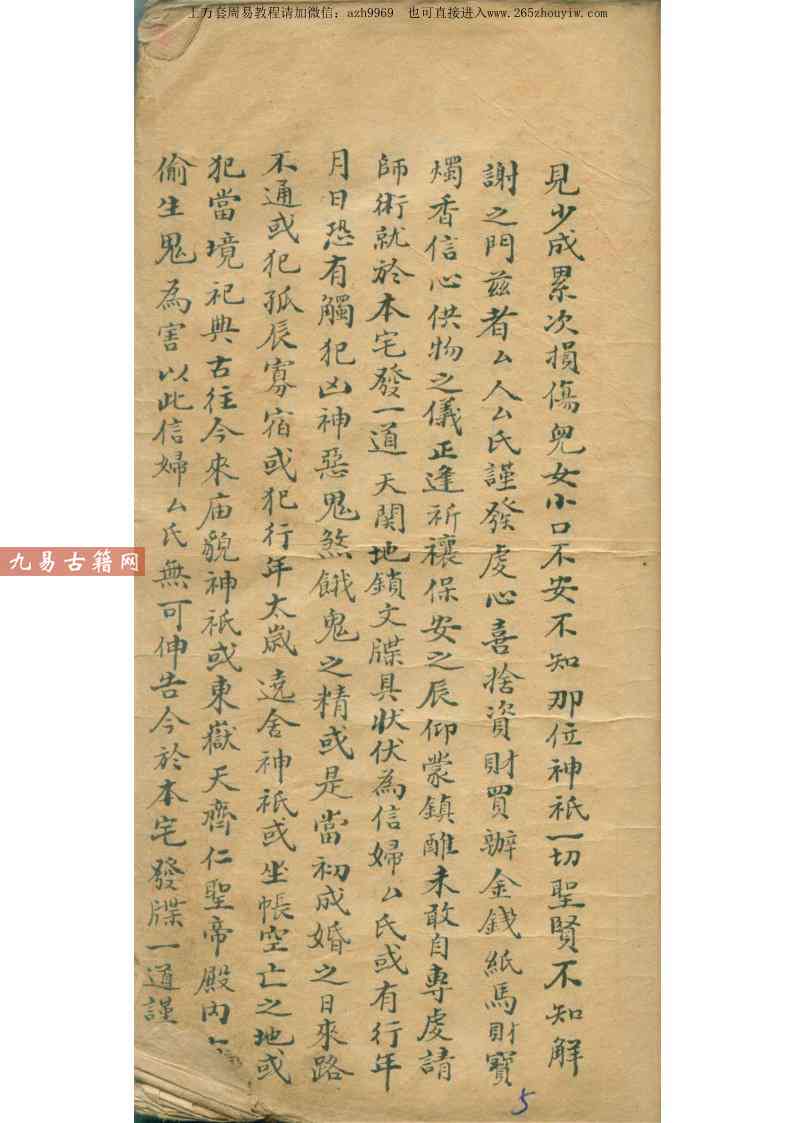 上万套周易教程请加微信：azh9969 也可直接进入www.265zhouyiw.com
見少成累次損傷兒女小口不安不知那位神祇一切聖賢不知解
謝之門兹者厶人厶氏謹發虔心喜捨資財買辦金錢紙馬財寶
燭香信心供物之儀正逢祈禳保安之辰仰蒙鎮醮未敢自專虔請
師術就於本宅發一道天関地鎖文牒具状伏為信婦厶氏或有行年
月日恐有觸犯凶神惡鬼煞餓鬼之精或是當初成婚之日來路
不通或犯孤辰寡宿或犯行年太歲遶舍神祇或坐帳空亡之地或
犯當境祀典古往今來庙貌神祇或東嶽天齊仁聖帝殿内
偷生鬼為害以此信婦厶氏無可伸告今於本宅發牒一道謹
九易古籍网
5